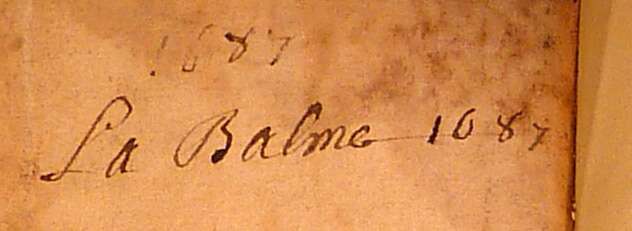 1687
La Balme 1687